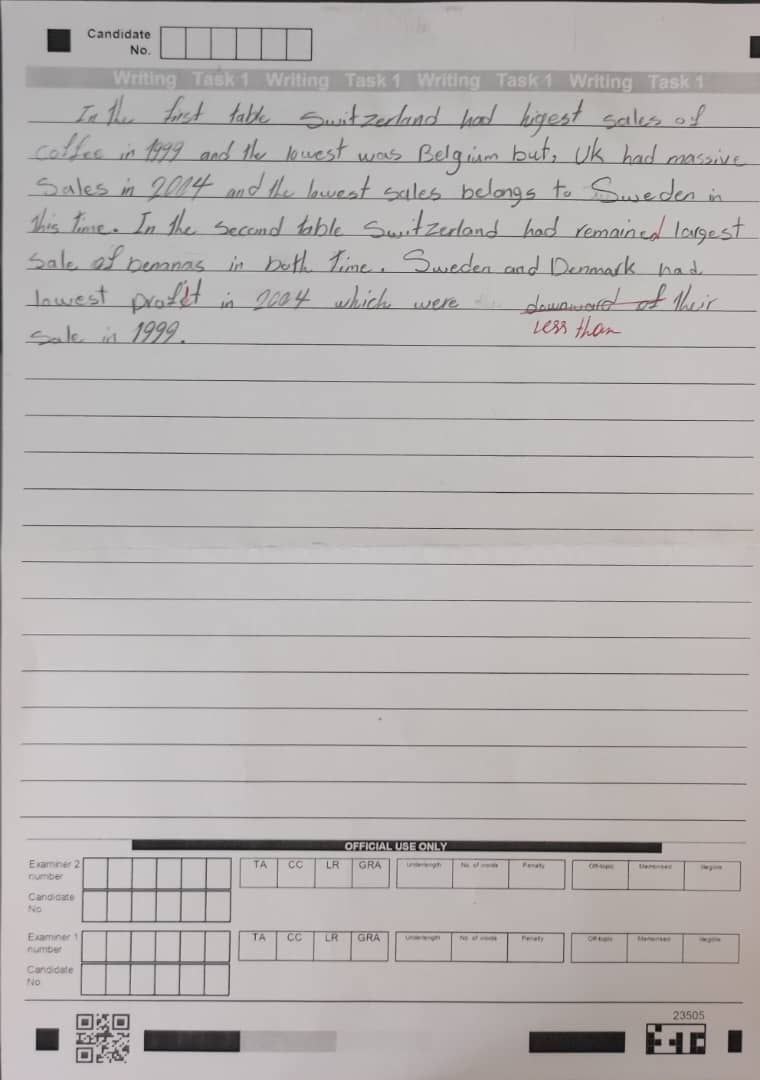 Candidate
No.
Writing Task 1 Writing Task 1 Writing Task 1 Writing Task 1
In the first table Switzerland had higest sales of
coffee in 1999 and the lowest was Belgium but, UK had massive
Sales in 2004 and the lowest sales belongs to Sweden in
this time. In the second table Switzerland had remained largest
sale of bennas in both time. Sweden and Denmark had
lowest profit in 2004 which were downward of their
less than
sale in 1999.
OFFICIAL USE ONLY
Examiner 2
number
TA CC LR GRA Underlength No. of words Penalty Off-topic Memorised Illegible
Candidate
No.
Examiner 1
number
TA CC LR GRA Underlength No. of words Penalty Off-topic Memorised Illegible
Candidate
No.
23505